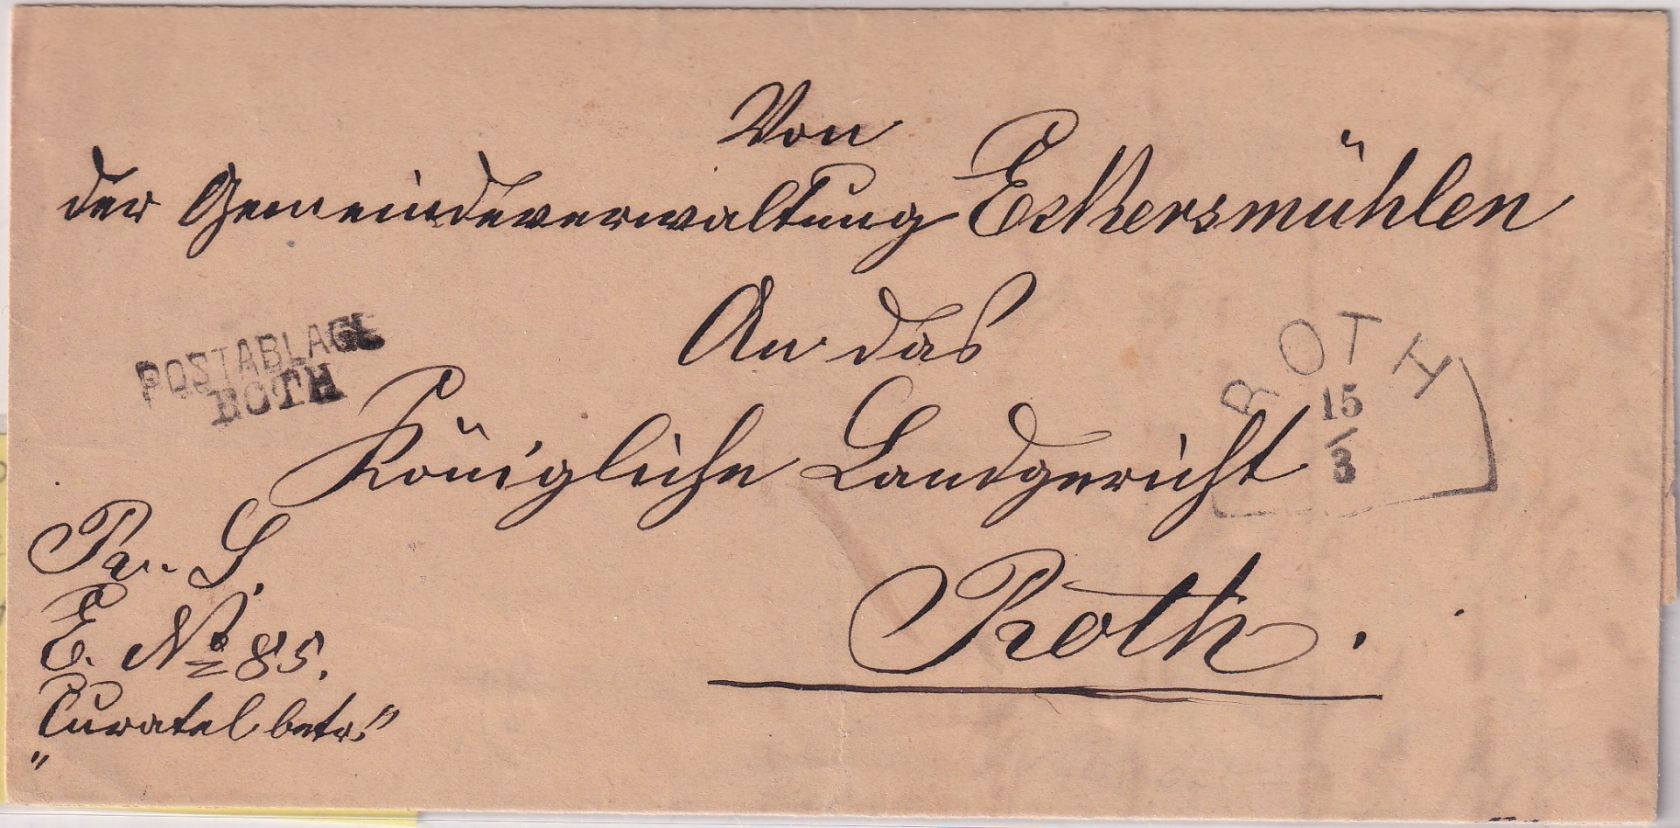 Von
der Gemeindeverwaltung Eckersmühlen
An das
Königliche Landgericht
Roth.
POSTABLAGE
ROTH
ROTH
15
3
R. S.
E. No 85.
"Curatel betr."